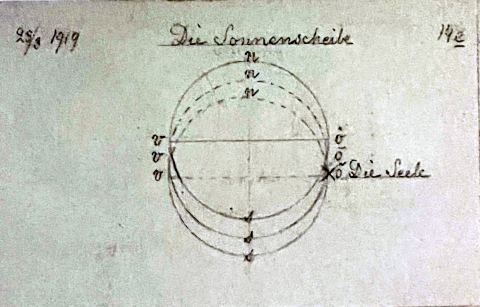 1919 Die Sonnenscheibe
n
n
n
v ö
v ö
v ö Die Seele
s
s
s